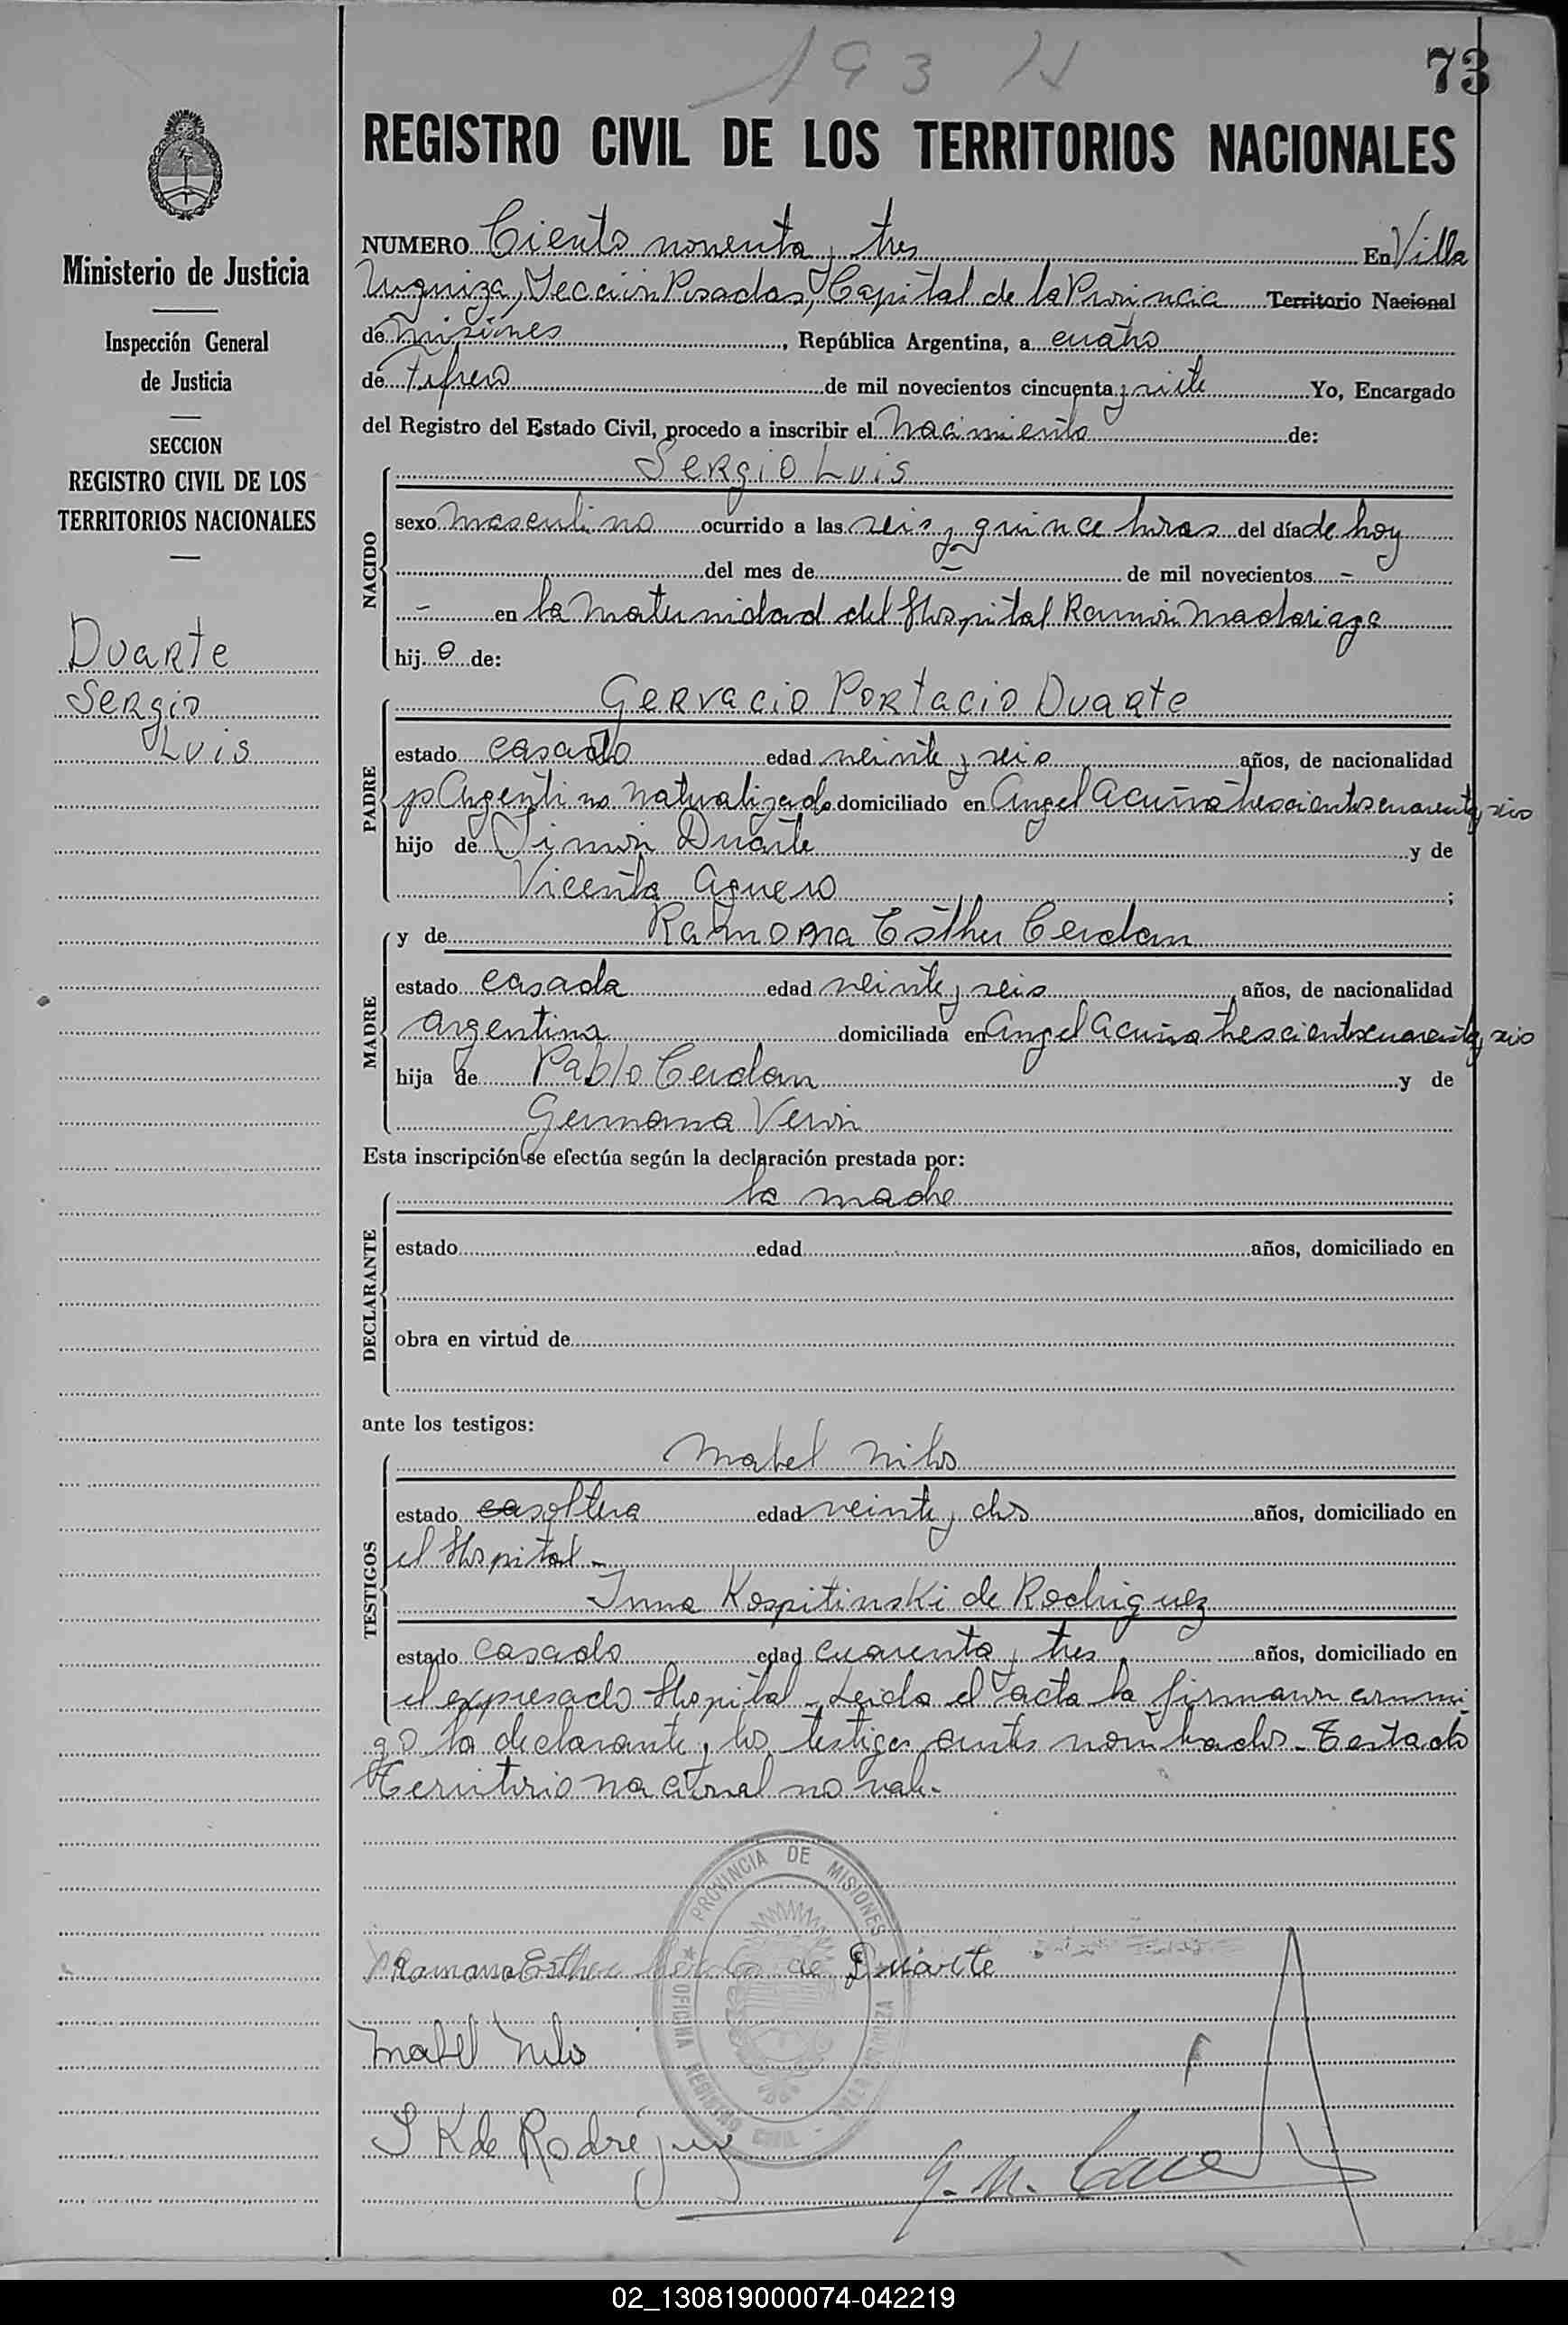 193 N
73
REGISTRO CIVIL DE LOS TERRITORIOS NACIONALES
Ministerio de Justicia
Inspección General
de Justicia
SECCION
REGISTRO CIVIL DE LOS
TERRITORIOS NACIONALES
Duarte
Sergio
Luis
NUMERO Ciento noventa y tres En Villa
Urquiza, Sección Posadas, Capital de la Provincia Territorio Nacional
de Misiones, República Argentina, a cuatro
de Febrero de mil novecientos cincuenta y siete Yo, Encargado
del Registro del Estado Civil, procedo a inscribir el Nacimiento de:
NACIDO
Sergio Luis
sexo masculino ocurrido a las seis y quince horas del día de hoy
del mes de – de mil novecientos –
– en la Maternidad del Hospital Ramón Madariaga
hij o de:
PADRE
Gervacio Portacio Duarte
estado casado edad veinte y seis años, de nacionalidad
Argentino naturalizado domiciliado en Angel Acuña trescientos cuarenta y seis
hijo de Simón Duarte y de
Vicenta Aguero ;
MADRE
y de Ramona Esther Cerdan
estado casada edad veinte y seis años, de nacionalidad
Argentina domiciliada en Angel Acuña trescientos cuarenta y seis
hija de Pablo Cerdan y de
Germana Verón
Esta inscripción se efectúa según la declaración prestada por:
DECLARANTE
la madre
estado edad años, domiciliado en
obra en virtud de
ante los testigos:
TESTIGOS
Mabel Nilo
estado ca soltera edad veinte y dos años, domiciliado en
el Hospital –
Inna Kospitinski de Rodriguez
estado casada edad cuarenta y tres años, domiciliado en
el expresado Hospital – Leida el acta la firmaron conmi
go la declarante y los testigos antes nombrados – Testado
Territorio nacional no vale.
PROVINCIA DE MISIONES
OFICINA REGISTRO CIVIL - VILLA URQUIZA
Ramona Esther Cerdan de Duarte
Mabel Nilo
I K de Rodríguez